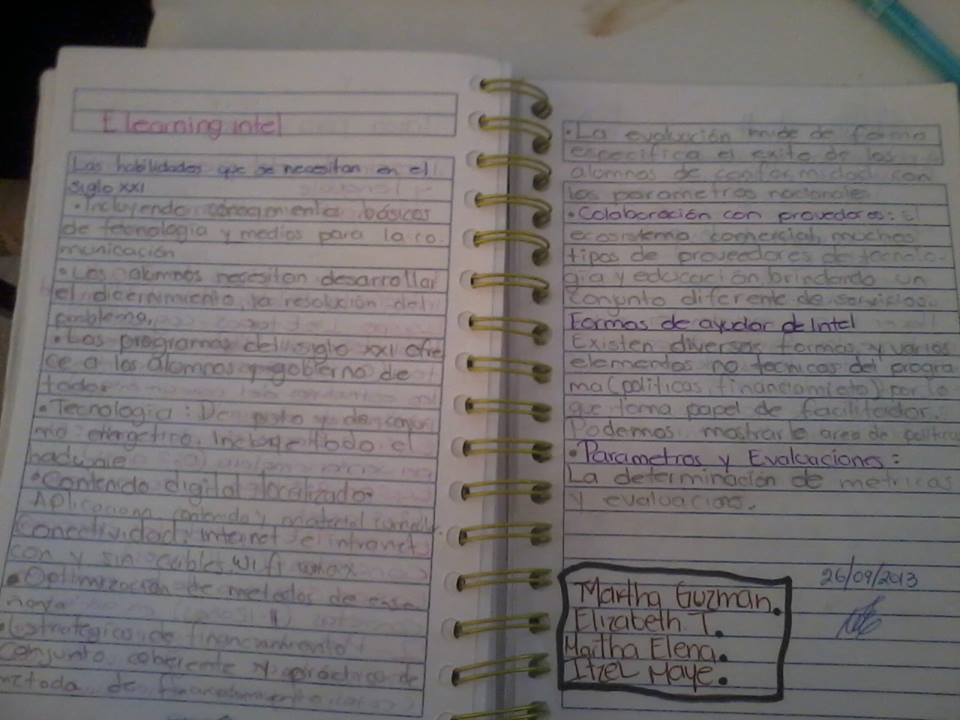 E learning intel
Las habilidades que se necesitan en el
siglo XXI
• Incluyendo conocimiento básicos
de tecnologia y medios para la co
municación
• Los alumnos necesitan desarrollar
el dicernimiento, la resolución del
problema.
• Los programas del siglo XXI ofre
ce a los alumnos y gobierno de
todos
• Tecnologia: De punto y de consu
mo energetico. Incluye todo el
• Contenido digital localizado:
Aplicaciona contenido y material
Conectividad: internet e intranet
con y sin cables wifi wmax
• Optimización de metodos de ense
ñaza
• Estrategico de financiamiento:
Conjunto coherente y práctico de
metoda de financiamiento
• La evolución mide de forma
especifica el exito de los
alumnos de conformidad con
los parametros nacionales
• Colaboración con provedores: El
ecosistema comercial, muchos
tipos de proveedores de tecnolo-
gia y educación, brindando un
conjunto diferente de servicios.
Formas de ayudar de Intel
Existen diversas formas y varios
elementos no tecnicos del progra
ma (politicas, financiamieto) por lo
que toma papel de facilitador.
Podemos mostrarle area de politica
• Parametros y Evaluaciones:
La determinación de metricas
y evaluacions.
26/09/2013
Martha Guzman.
Elizabeth T.
Martha Elena.
Itzel Maye.